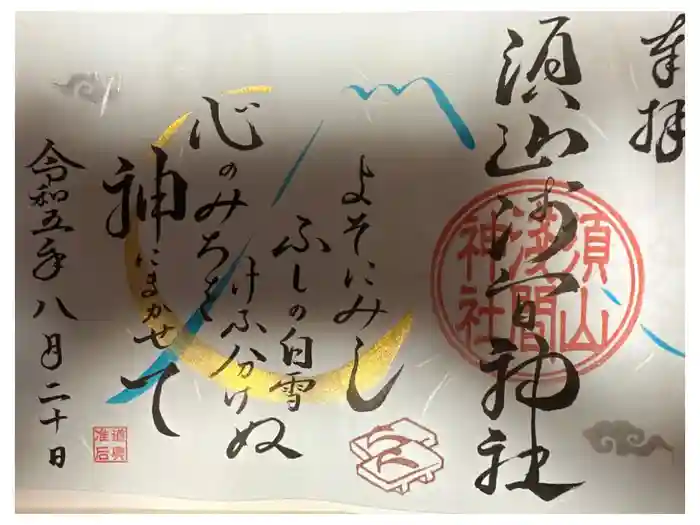 奉拝
須山浅間神社
須山
浅間
神社
よそにみし
ふしの白雪
けふ分けぬ
心のみちを
神にまかせて
令和五年八月二十日
道興
准后